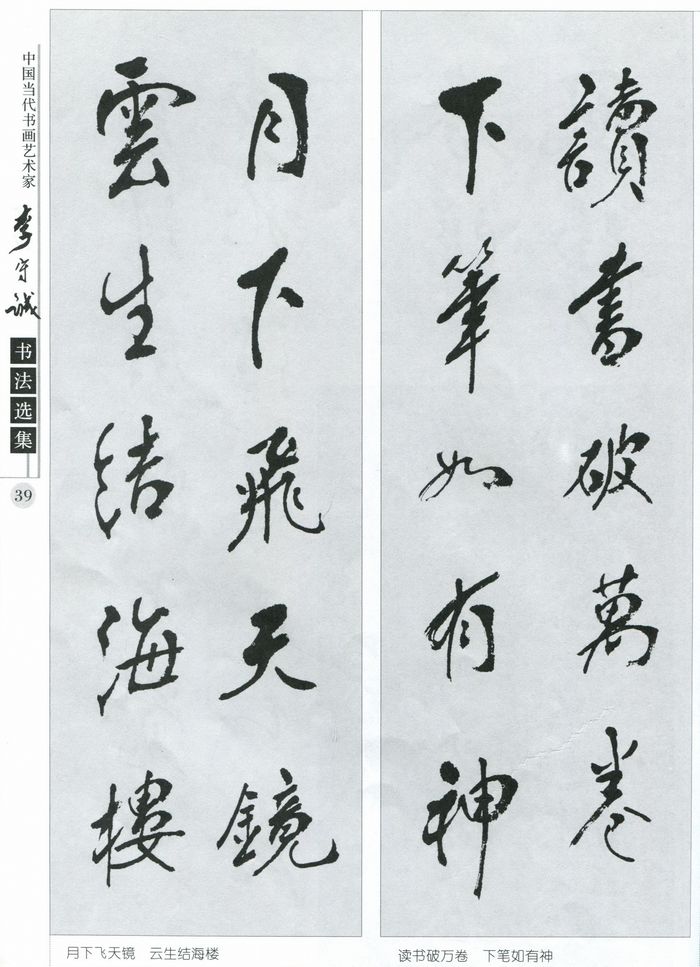 中国当代书画艺术家
李守诚
书法选集
39
讀書破萬卷
下筆如有神
月下飛天鏡
雲生结海樓
月下飞天镜　云生结海楼
读书破万卷　下笔如有神